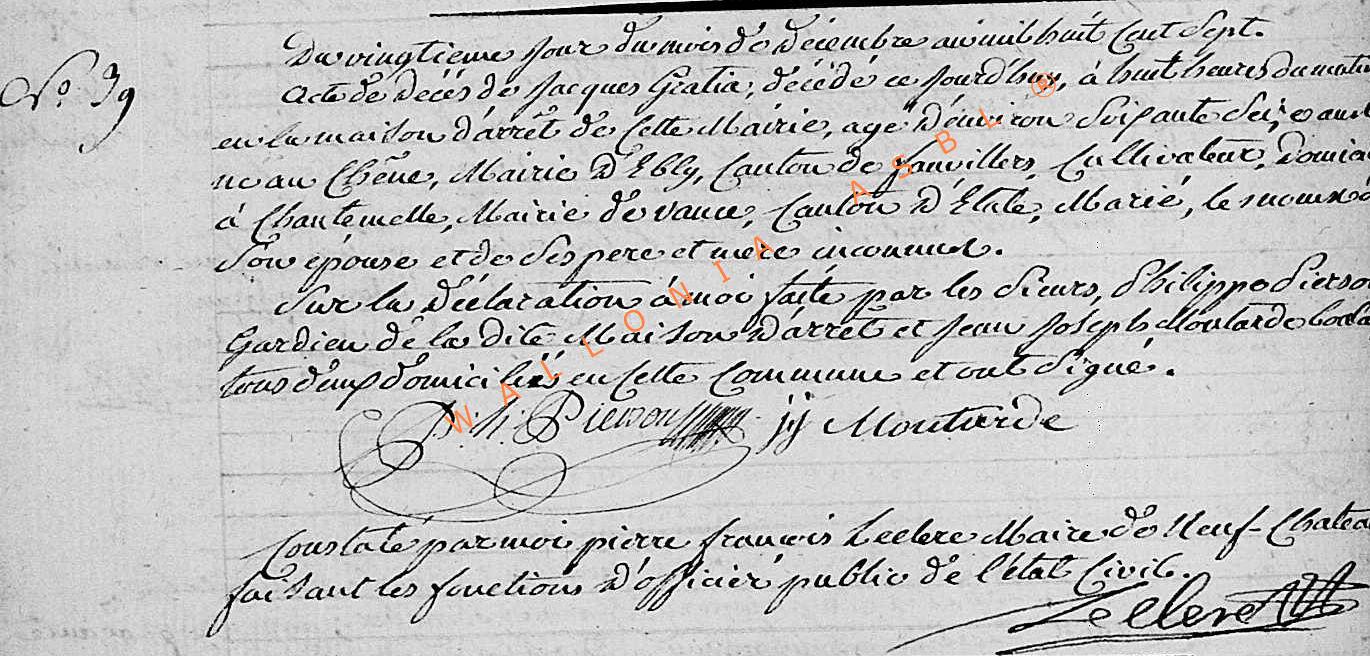 Du vingtieme jour du mois de Décembre an mil huit Cent Sept.
N.° 39
Acte de Décés de Jacques Gratia, décédé ce jourd'huy, à huit heures du matin
en la maison d'arrêt de Cette Mairie, agé d'environ Soixante Seize ans
né au Chêne, Mairie d'Ebly, Canton de fauvillers, Cultivateur, Domici
à Chantemelle, Mairie de vance, Canton d'Etale, Marié, le nom
Son épouse et de Ses pere et mere inconnus.
Sur la Déclaration à moi faite par les Sieurs, Philippe Pierson
Gardien de la dite Maison d'arrêt et Jean Joseph Moutarde
tous deux domiciliés en Cette Commune et ont Signé.
Ph. Pierson jj Moutarde
Constaté par moi pierre françois Leclerc Maire de Neuf-Chatea
faisant les fonctions d'officier public de l'état Civil.
Leclerc
WALLONIA ASBL ®